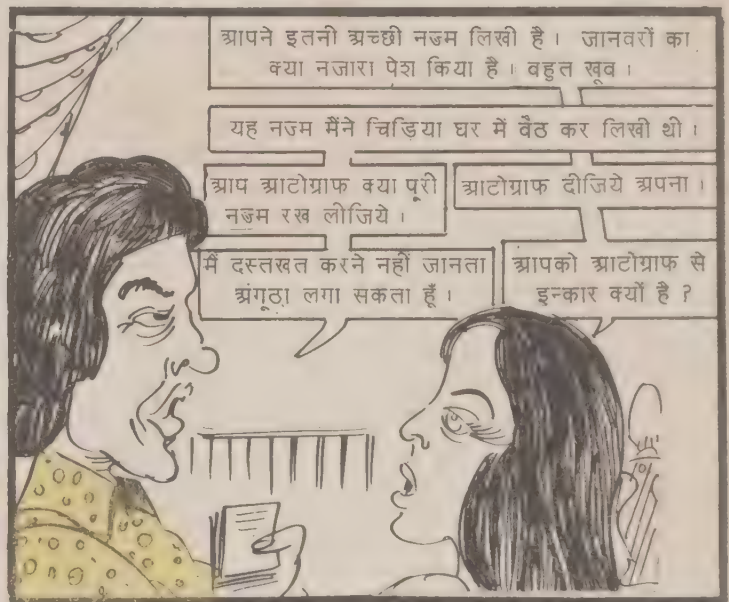 आपने इतनी अच्छी नज्म लिखी है। जानवरों का
क्या नजारा पेश किया है। वहुत खूव।
यह नज्म मैंने चिड़िया घर में वैठ कर लिखी थी।
आटोग्राफ दीजिये अपना।
आप आटोग्राफ क्या पूरी
नज्म रख लीजिये।
आपको आटोग्राफ से
इन्कार क्यों है ?
मैं दस्तखत करने नहीं जानता
अंगूठा लगा सकता हूँ।